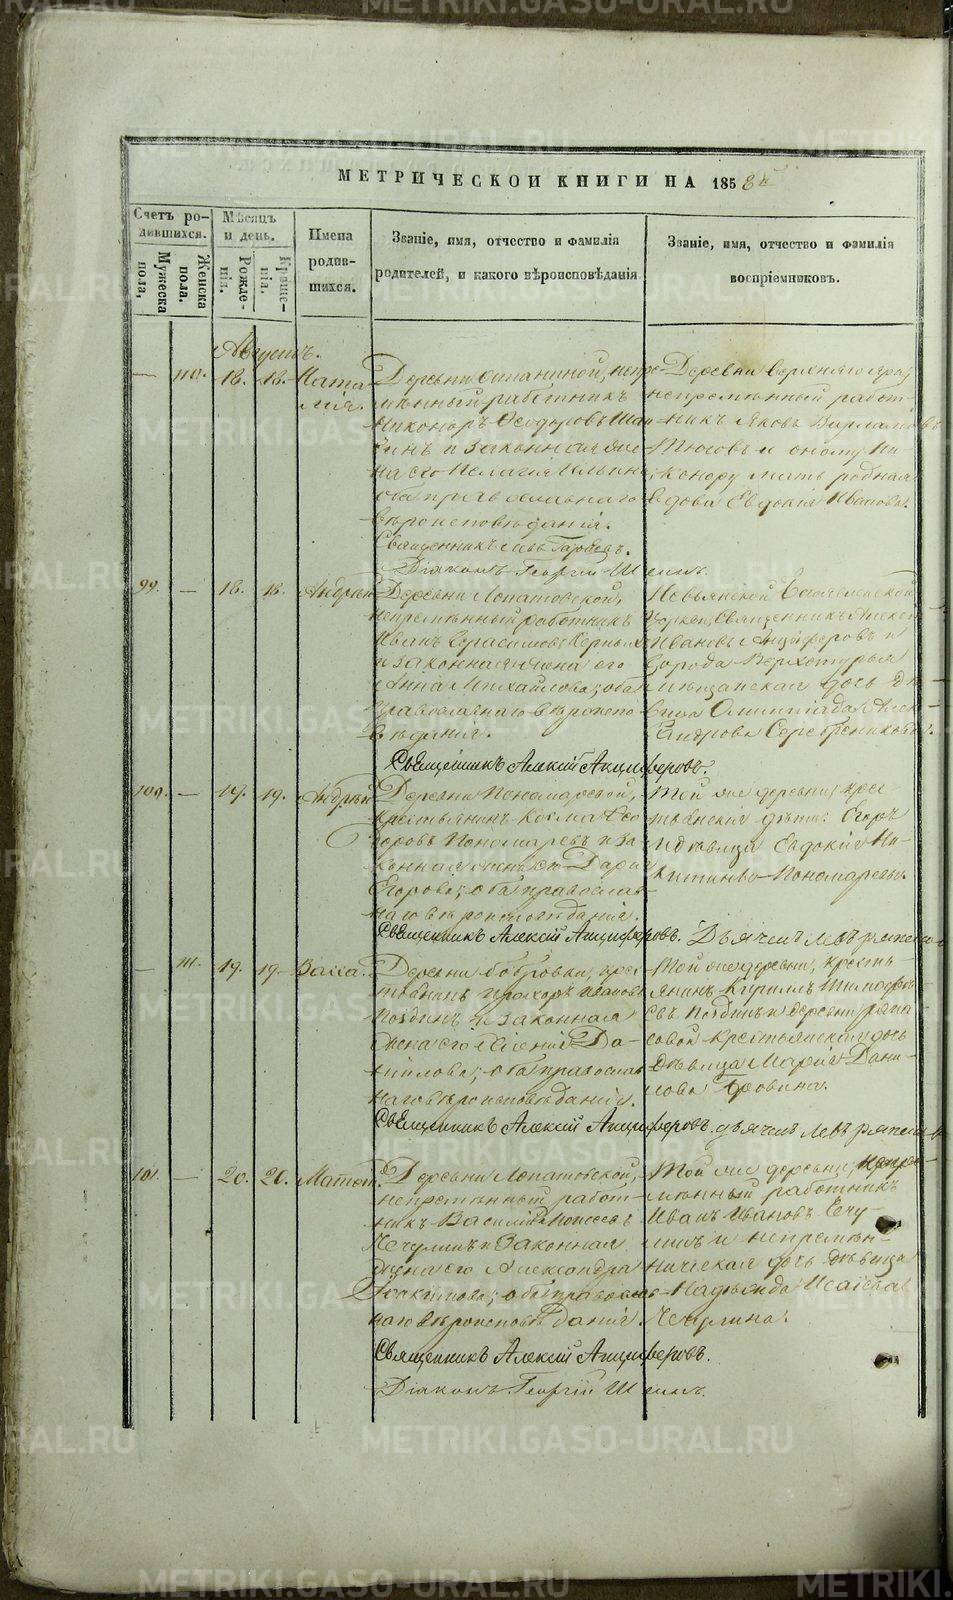 МЕТРИЧЕСКОЙ КНИГИ НА 1858 й
Счетъ ро-
дившихся.
Мужеска
пола,
Женска
пола.
Мѣсяцъ
и день.
Рожде-
нія.
Креще-
нія.
Имена
родив-
шихся.
Званіе, имя, отчество и фамилія
родителей, и какого вѣроисповѣданія
Званіе, имя, отчество и фамилія
воспріемниковъ.
Августъ.
— 110. 18. 18. Ната
лія.
Деревни непре-
мѣнный работникъ
Никаноръ Ѳеодоровъ
и законная же
на его Пелагія Ильина
оба православнаго
вѣроисповѣданія.
Священникъ Левъ
Діаконъ Георгій
Деревни
непремѣнный работ-
никъ Яковъ
и оному Ни-
канору мать родная
вдова Евдокія Иванова.
99. — 18. 18. Андрей
Деревни Лопатовской,
непремѣнный работникъ
Иванъ Герасимовъ Черныхъ
и законная жена его
Анна Михайлова; оба
православнаго вѣроиспо
вѣданія.
Священникъ Алексій Анциферовъ.
Невьянской
церкви, Священникъ Алексѣй
Ивановъ Анциферовъ и
города Верхотурья
мѣщанская дочь дѣ
вица Олимпіада Алек-
сандрова Серебренникова.
100. — 19. 19. Андрей
Деревни Пономаревой,
крестьянинъ Косма Ѳео
доровъ Пономаревъ и за-
конная жена его Дарья
Егорова; оба православ-
наго вѣроисповѣданія.
Священникъ Алексій Анциферовъ. Дьячекъ Левъ
Той же деревни, крес-
тьянскія дѣти: Егоръ
и дѣвица Евдокія Ни-
китины Пономаревы.
— 111. 19. 19. Васса.
Деревни Бобровки, крес-
тьянинъ Прохоръ Ивановъ
Поздинъ и законная
жена его Ксенія Да-
нилова; оба православ-
наго вѣроисповѣданія.
Священникъ Алексій Анциферовъ. дьячекъ Левъ
Той же деревни, кресть-
янинъ Кириллъ Тимофѣ
евъ Поздинъ и деревни
крестьянская дочь
дѣвица Марія Дани-
лова
101. — 20. 20. Матѳей.
Деревни Лопатовской,
непремѣнный работ-
никъ Василій Моисеевъ
Чечулинъ и законная
жена его Александра
Іоакимова; оба православ-
наго вѣроисповѣданія.
Священникъ Алексій Анциферовъ.
Діаконъ Георгій
Той же деревни, непре-
мѣнный работникъ
Иванъ Ивановъ Чечу-
линъ и непремѣн-
ническая дочь дѣвица
Надежда Исаіева
Чечулина.